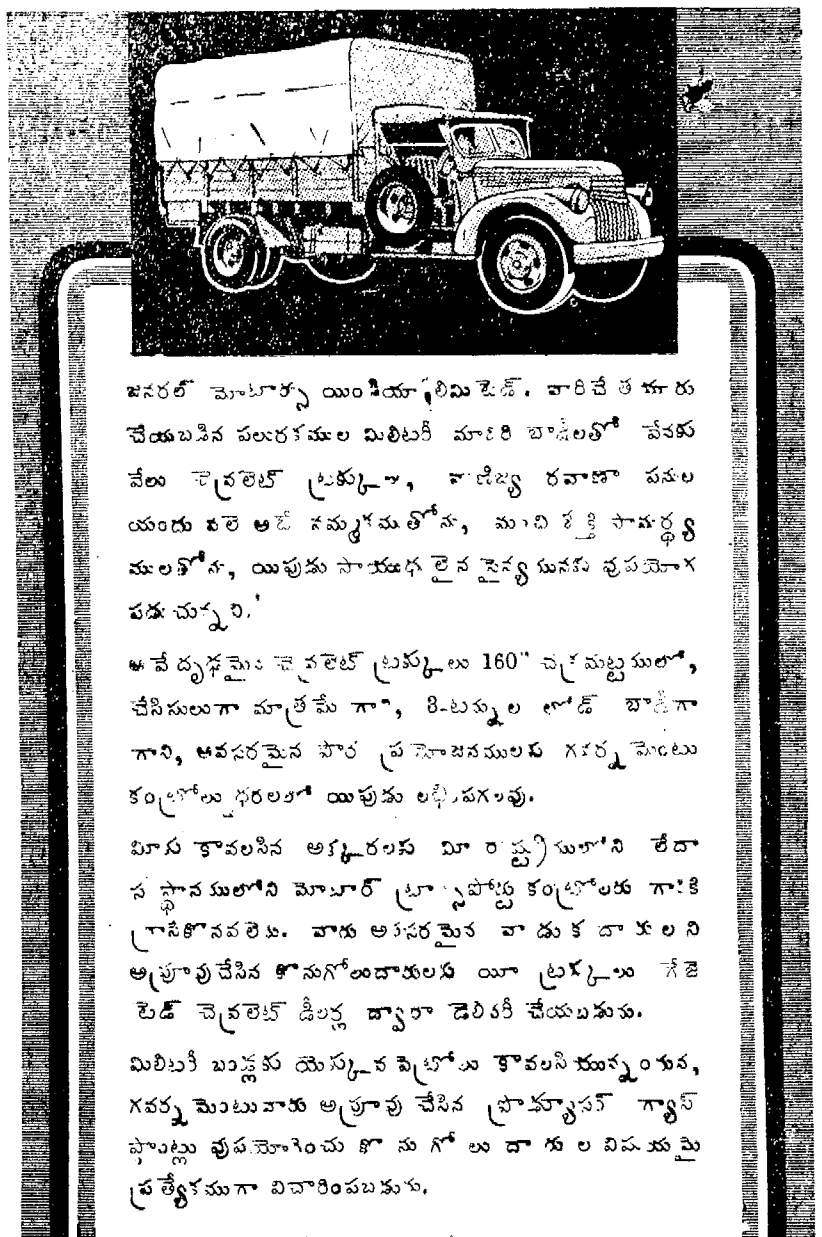 జనరల్ మోటార్సు యిండియా, లిమిటెడ్. వారిచే తయారు
చేయబడిన పలురకముల మిలిటరీ మాదిరి బాడీలతో వేనకు
వేలు చెవ్రలెట్ ట్రక్కులు, వాణిజ్య రవాణా పనుల
యందు వలె అదే నమ్మకముతోను, మంచి శక్తి సామర్థ్య
ములతోను, యిపుడు సాయుధ లైన సైన్యమునకు వుపయోగ
పడుచున్నవి.
అవే దృఢమైన చెవ్రలెట్ ట్రక్కులు 160" చక్రమట్టములో,
చేసిసులుగా మాత్రమే గాని, 3-టన్నుల లోడ్ బాడీగా
గాని, అవసరమైన పౌర ప్రయోజనములకు గవర్న మెంటు
కంట్రోలు ధరలలో యిపుడు లభింపగలవు.
మీకు కావలసిన అక్కరలకు మీ రాష్ట్రములోని లేదా
సంస్థానములోని మోటార్ ట్రాన్సుపోర్టు కంట్రోలరు గారికి
వ్రాసికొనవలెను. వారు అవసరమైన వాడుక దారులని
అప్రూవుచేసిన కొనుగోలుదారులకు యీ ట్రక్కులు గేజె
టెడ్ చెవ్రలెట్ డీలర్ల ద్వారా డెలివరీ చేయబడును.
మిలిటరీ బండ్లకు యెక్కువ పెట్రోలు కావలసియున్నందున,
గవర్న మెంటువారు అప్రూవు చేసిన ప్రొడ్యూసర్ గ్యాస్
ప్లాంట్లు వుపయోగించు కొనుగోలుదారుల విషయమై
ప్రత్యేకముగా విచారింపబడును.